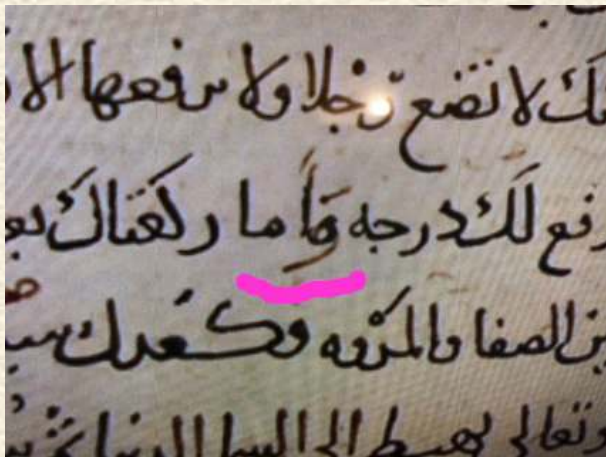 لا تضع رجلا ولا ترفعها الا
رفع لك درجه وأما ركعتاك
ين الصفا والمروه فكعدل
وتعالى يهبط الى السما الدنيا